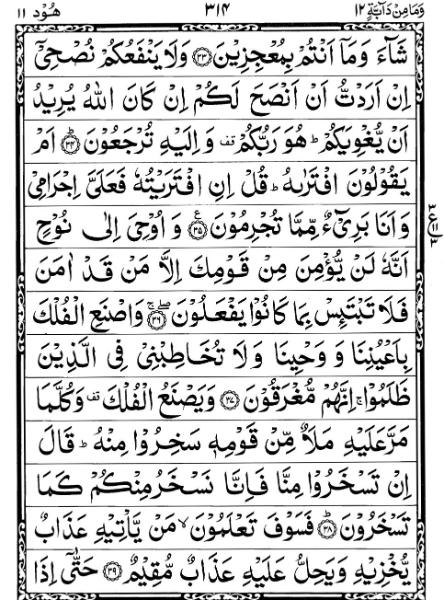 وَمَا مِنْ دَآبَّةٍ ١٢ ٣١٤ هُوْد ١١
شَآءَ وَمَاۤ اَنْتُمْ بِمُعْجِزِيْنَ ﴿۳۳﴾ وَلَا يَنْفَعُكُمْ نُصْحِيْۤ
اِنْ اَرَدْتُّ اَنْ اَنْصَحَ لَكُمْ اِنْ كَانَ اللّٰهُ يُرِيْدُ
اَنْ يُّغْوِيَكُمْ ؕ هُوَ رَبُّكُمْ قف وَاِلَيْهِ تُرْجَعُوْنَ ﴿ؕ۳۴﴾ اَمْ
يَقُوْلُوْنَ افْتَرٰىهُ ؕ قُلْ اِنِ افْتَرَيْتُهٗ فَعَلَيَّ اِجْرَامِيْ
وَاَنَا بَرِيْٓءٌ مِّمَّا تُجْرِمُوْنَ ﴿۳۵﴾ ع وَاُوْحِيَ اِلٰى نُوْحٍ
اَنَّهٗ لَنْ يُّؤْمِنَ مِنْ قَوْمِكَ اِلَّا مَنْ قَدْ اٰمَنَ
فَلَا تَبْتَئِسْ بِمَا كَانُوْا يَفْعَلُوْنَ ﴿۳۶﴾ وَاصْنَعِ الْفُلْكَ
بِاَعْيُنِنَا وَوَحْيِنَا وَلَا تُخَاطِبْنِيْ فِي الَّذِيْنَ
ظَلَمُوْا ۚ اِنَّهُمْ مُّغْرَقُوْنَ ﴿۳۷﴾ وَيَصْنَعُ الْفُلْكَ قف وَكُلَّمَا
مَرَّ عَلَيْهِ مَلَاٌ مِّنْ قَوْمِهٖ سَخِرُوْا مِنْهُ ؕ قَالَ
اِنْ تَسْخَرُوْا مِنَّا فَاِنَّا نَسْخَرُ مِنْكُمْ كَمَا
تَسْخَرُوْنَ ﴿ؕ۳۸﴾ فَسَوْفَ تَعْلَمُوْنَ ۙ مَنْ يَّاْتِيْهِ عَذَابٌ
يُّخْزِيْهِ وَيَحِلُّ عَلَيْهِ عَذَابٌ مُّقِيْمٌ ﴿۳۹﴾ حَتّٰۤى اِذَا